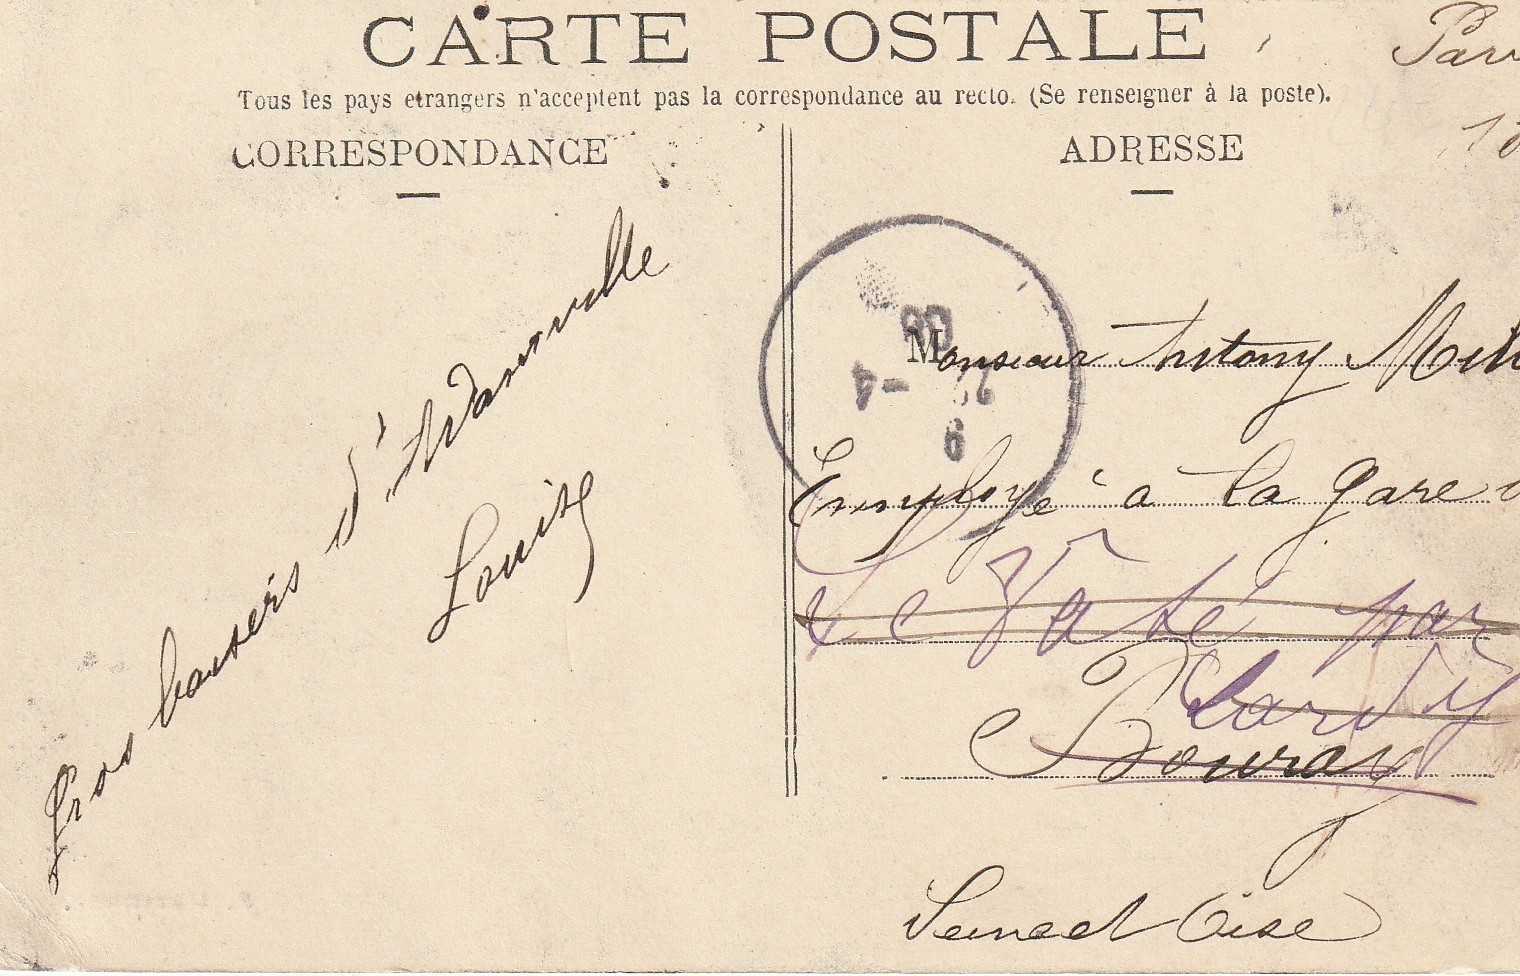 CARTE POSTALE
Tous les pays etrangers n'acceptent pas la correspondance au recto. (Se renseigner à la poste).
CORRESPONDANCE
ADRESSE
Gros baisers d'Adanville
Louise
Monsieur Antony
Employé à la gare
Le Vasé par
Lardy
Bouray
Seine et Oise
22 - 4